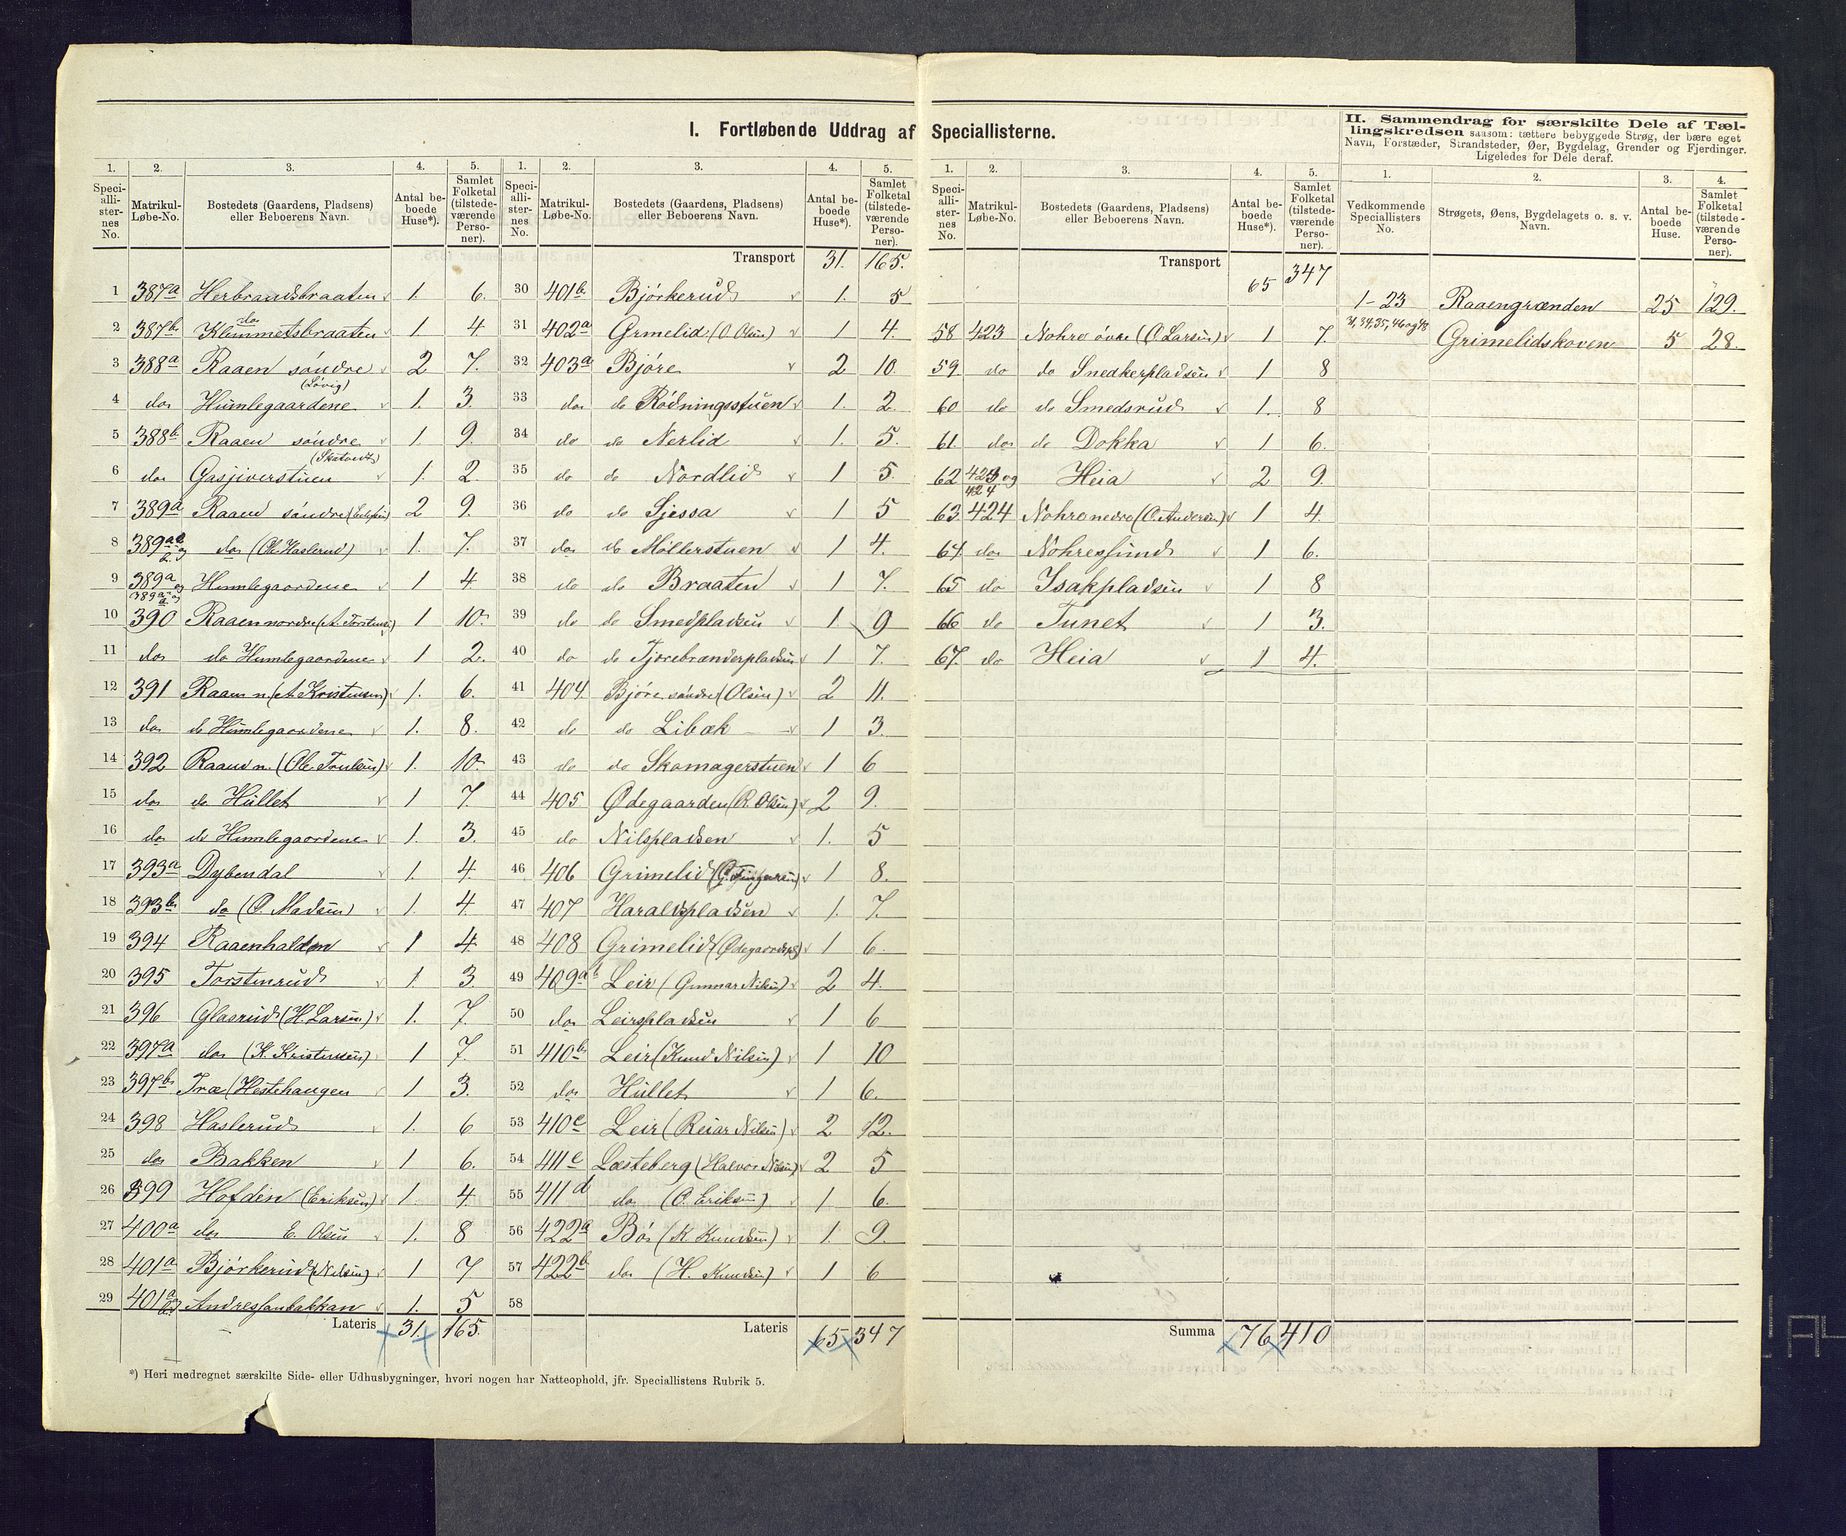 I. Fortløbende Uddrag af Speciallisterne.
1. 2. 3. 4. 5.
Speciallisternes No. Matrikul-Løbe-No. Bostedets (Gaardens, Pladsens) eller Beboerens Navn. Antal beboede Huse*). Samlet Folketal (tilstedeværende Personer).
1 387a Herbraadsbraaten 1. 6.
2 387b do Klemmetsbraaten 1 4
3 388a Raaen søndre (Løvig) 2 7.
4 do Humlegaardene 1. 3.
5 388b Raaen søndre (Skatvedt) 1 9.
6 do Gasjiverstuen 1. 2.
7 389a Raaen søndre 2 9.
8 389 do (Ole Haslerud) 1. 7.
9 389a og Humlegaardene 1 4
10 390 Raaen nordre (A. Torstensen) 1 10
11 do do Humlegaardene 1 2.
12 391 Raaen n. (A Kristensen) 1. 6.
13 do do Humlegaardene 1. 8.
14 392 Raaen n. (Ole Trulsen) 1. 10.
15 do do Hullet 1 7.
16 do do Humlegaardene 1. 3.
17 393a Dybendal 1. 4.
18 393b do (O. Madsen) 1. 4.
19 394 Raaenhalden 1 4
20 395 Torstenrud 1. 3.
21 396 Glasrud (H. Larsen) 1. 7.
22 397a do (K. Kristensen) 1 7.
23 397b Træ (Hestehaugen 1 3.
24 398 Haslerud 1. 6
25 do Bakken 1 6.
26 399 Hofden (Eriksen) 1. 4.
27 400a do E. Olsen 1. 8
28 401a Bjørkerud (Nilsen) 1 7
29 401a Andresfanbakkan 1. 5
Lateris 31. 165.
1. 2. 3. 4. 5.
Speciallisternes No. Matrikul-Løbe-No. Bostedets (Gaardens, Pladsens) eller Beboerens Navn. Antal beboede Huse*). Samlet Folketal (tilstedeværende Personer).
Transport 31. 165.
30 401b Bjørkerud 1. 5
31 402a Grmelid (O. Olsen) 1 4.
32 403a Bjøre 2 10.
33 do do Rødningsstuen 1. 2.
34 do do Nerlid 1. 5.
35 do do Nordlid 1 5.
36 do do Sjessa 1 5
37 do do Møllerstuen 1 4.
38 do do Braaten 1 7.
39 do do Smedpladsen 1 9
40 do do Tjærebrænderpladsen 1 7.
41 404. Bjøre søndre (Olsen) 2 11.
42 do do Libæk 1 3.
43 do do Skomagerstuen 1 6
44 405 Ødegaarden (R. Olsen) 2 9.
45 do Nilspladsen 1. 5
46 406 Grimelid 1 8.
47 407 Haraldspladsen 1. 7.
48 408 Grimelid (Ødegaarden) 1 6.
49 409a Leir (Gunnar Nilsen) 2 4.
50 do Leirspladsen 1 6
51 410b Leir (Knud Nilsen) 1 10
52 do Hullet 1 6.
53 410c Leir (Reiar Nilsen) 2 12.
54 411c Læsteberg (Halvor Nilsen) 2 5
55 411d do (O. Eriksen) 1 6.
56 422a Bø (K Knudsen) 1. 9.
57 422b do (H. Knudsen) 1 6
58
Lateris 65 347
*) Heri medregnet særskilte Side- eller Udhusbygninger, hvori nogen har Natteophold, jfr. Speciallistens Rubrik 5.
1. 2. 3. 4. 5.
Speciallisternes No. Matrikul-Løbe-No. Bostedets (Gaardens, Pladsens) eller Beboerens Navn. Antal beboede Huse*). Samlet Folketal (tilstedeværende Personer).
Transport 65 347
58 423 Nohre øvre (O. Larsen) 1 7.
59. do do Snedkerpladsen 1 8
60 do do Smedsrud 1. 8
61. do do Dokka 1 6.
62 423 og 424 Heia 2 9.
63. 424 Nohre nedre (O. Andersen) 1 4.
64. do Nohresund 1 6.
65 do Isakpladsen 1 8
66 do Tunet 1 3.
67. do Heia 1 4.
Summa 76 410
II. Sammendrag for særskilte Dele af Tællingskredsen saasom: tættere bebyggede Strøg, der bære eget
Navn, Forstæder, Strandsteder, Øer, Bygdelag, Grender og Fjerdinger.
Ligeledes for Dele deraf.
1. 2. 3. 4.
Vedkommende Speciallisters No. Strøgets, Øens, Bygdelagets o. s. v. Navn. Antal beboede Huse. Samlet Folketal (tilstedeværende Personer).
1-23 Raaengrænden 25 129.
31, 34, 35, 46 og 48 Grimelidskoven 5 28.